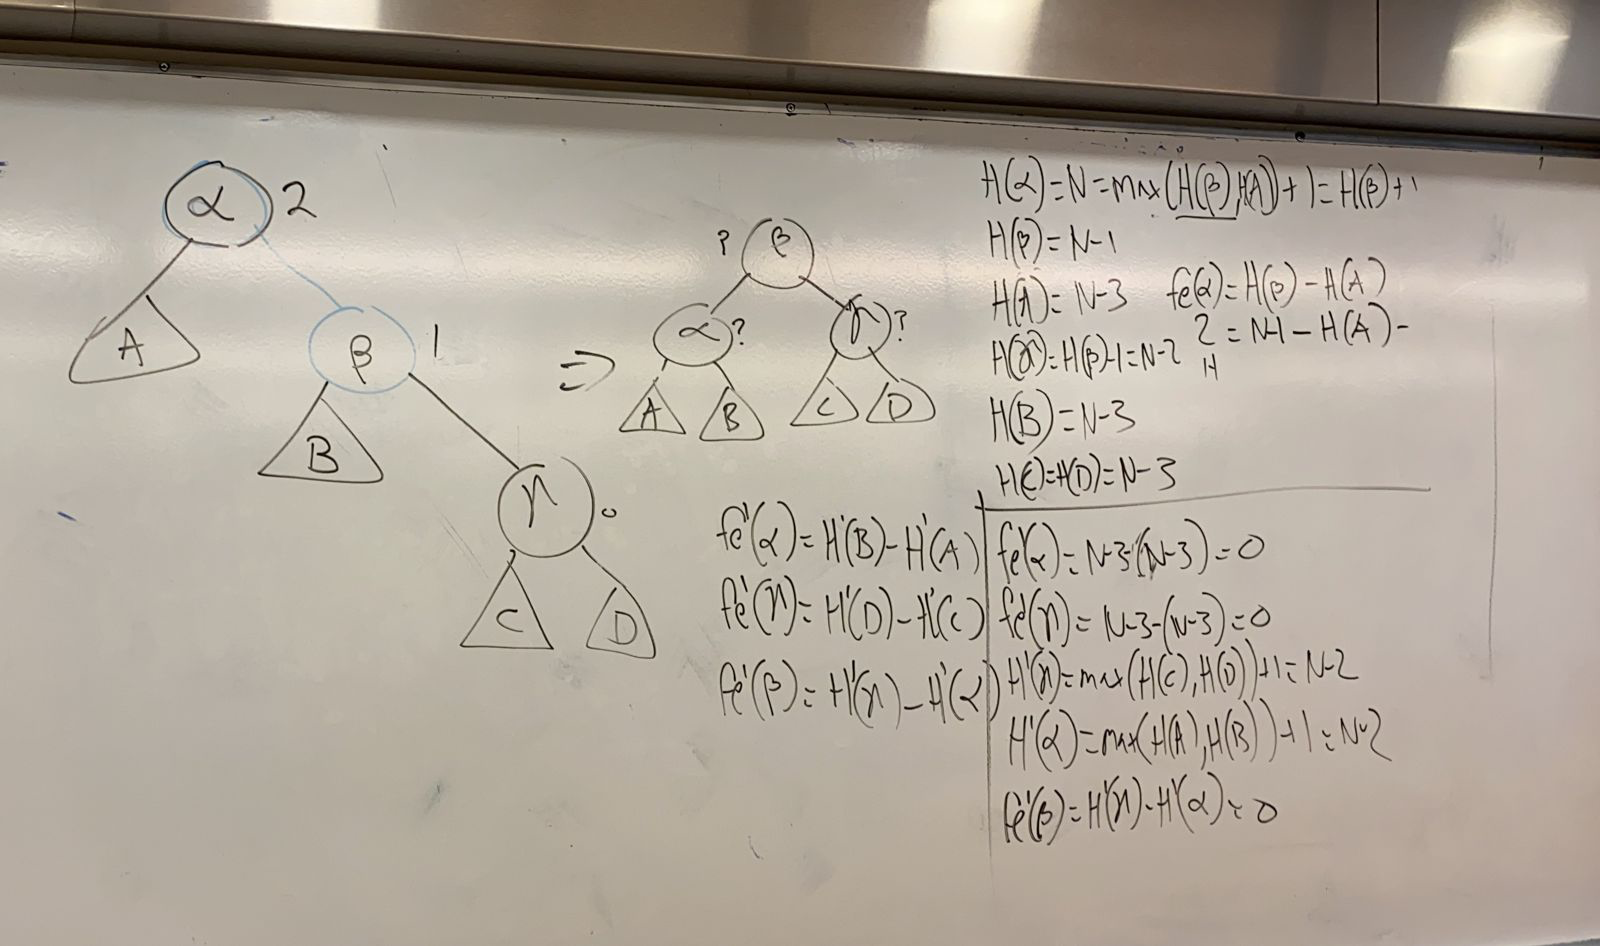 α 2
A
β 1
B
γ 0
C
D
⇒
? β
α ?
γ ?
A B C D
H(α)=N=max(H(β),H(A))+1=H(β)+1
H(β)=N-1
H(A)=N-3 fe(α)=H(β)-H(A)
2=N-1-H(A)-
H(γ)=H(β)-1=N-2 H
H(B)=N-3
H(C)=H(D)=N-3
fe'(α)=H'(B)-H'(A)
fe'(γ)=H'(D)-H'(C)
fe'(β)=H'(γ)-H'(α)
fe'(α)=N-3-(N-3)=0
fe'(γ)=N-3-(N-3)=0
H'(γ)=max(H(C),H(D))+1=N-2
H'(α)=max(H(A),H(B))+1=N-2
fe'(β)=H'(γ)-H'(α)=0